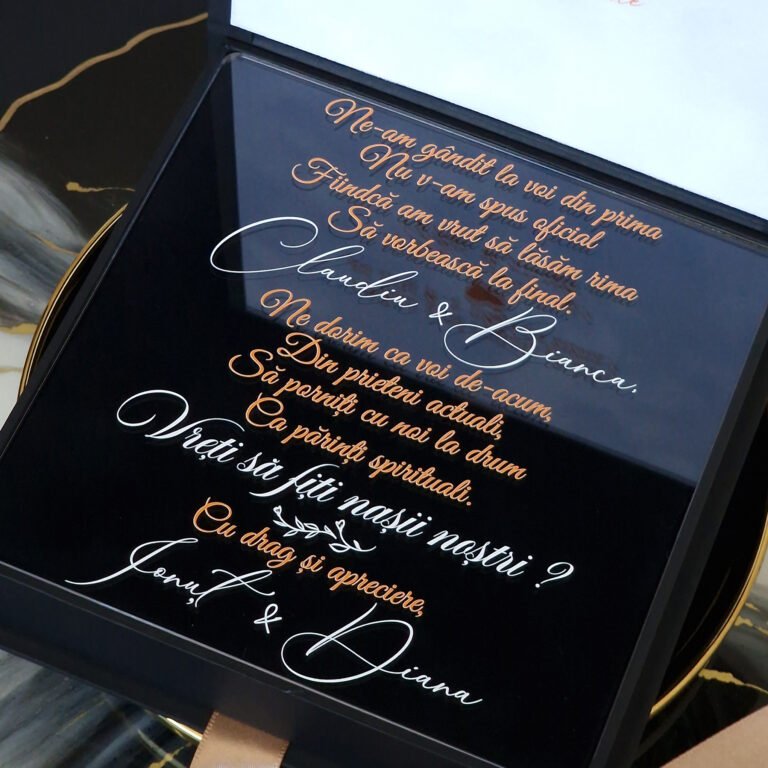 Ne-am gândit la voi din prima
Nu v-am spus oficial
Fiindcă am vrut să lăsăm rima
Să vorbească la final.
Claudiu & Bianca,
Ne dorim ca voi de-acum,
Din prieteni actuali,
Să porniți cu noi la drum
Ca părinți spirituali.
Vreți să fiți nașii noștri ?
Cu drag și apreciere,
Ionuț & Diana